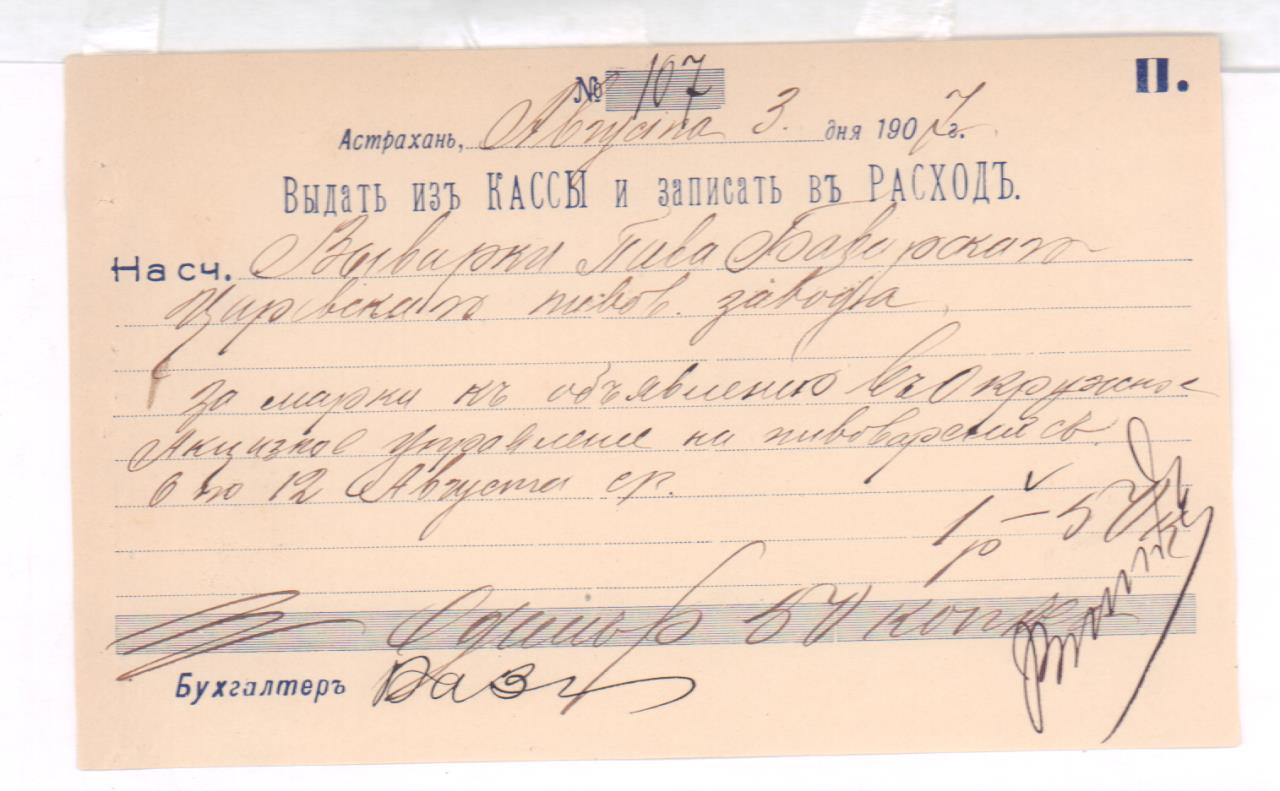 № 107
П.
Астрахань, Августа 3. дня 1907 г.
Выдать изъ КАССЫ и записать въ РАСХОДЪ.
На сч. Выварки Пива Баварскаго
Царевскаго пивов. завода
за марки къ объявленію въ Окружное
Акцизное управленіе на пивовареніе съ
6 по 12 Августа ср.
1 р — 50 к
Одинъ р 50 копѣек
Бухгалтеръ